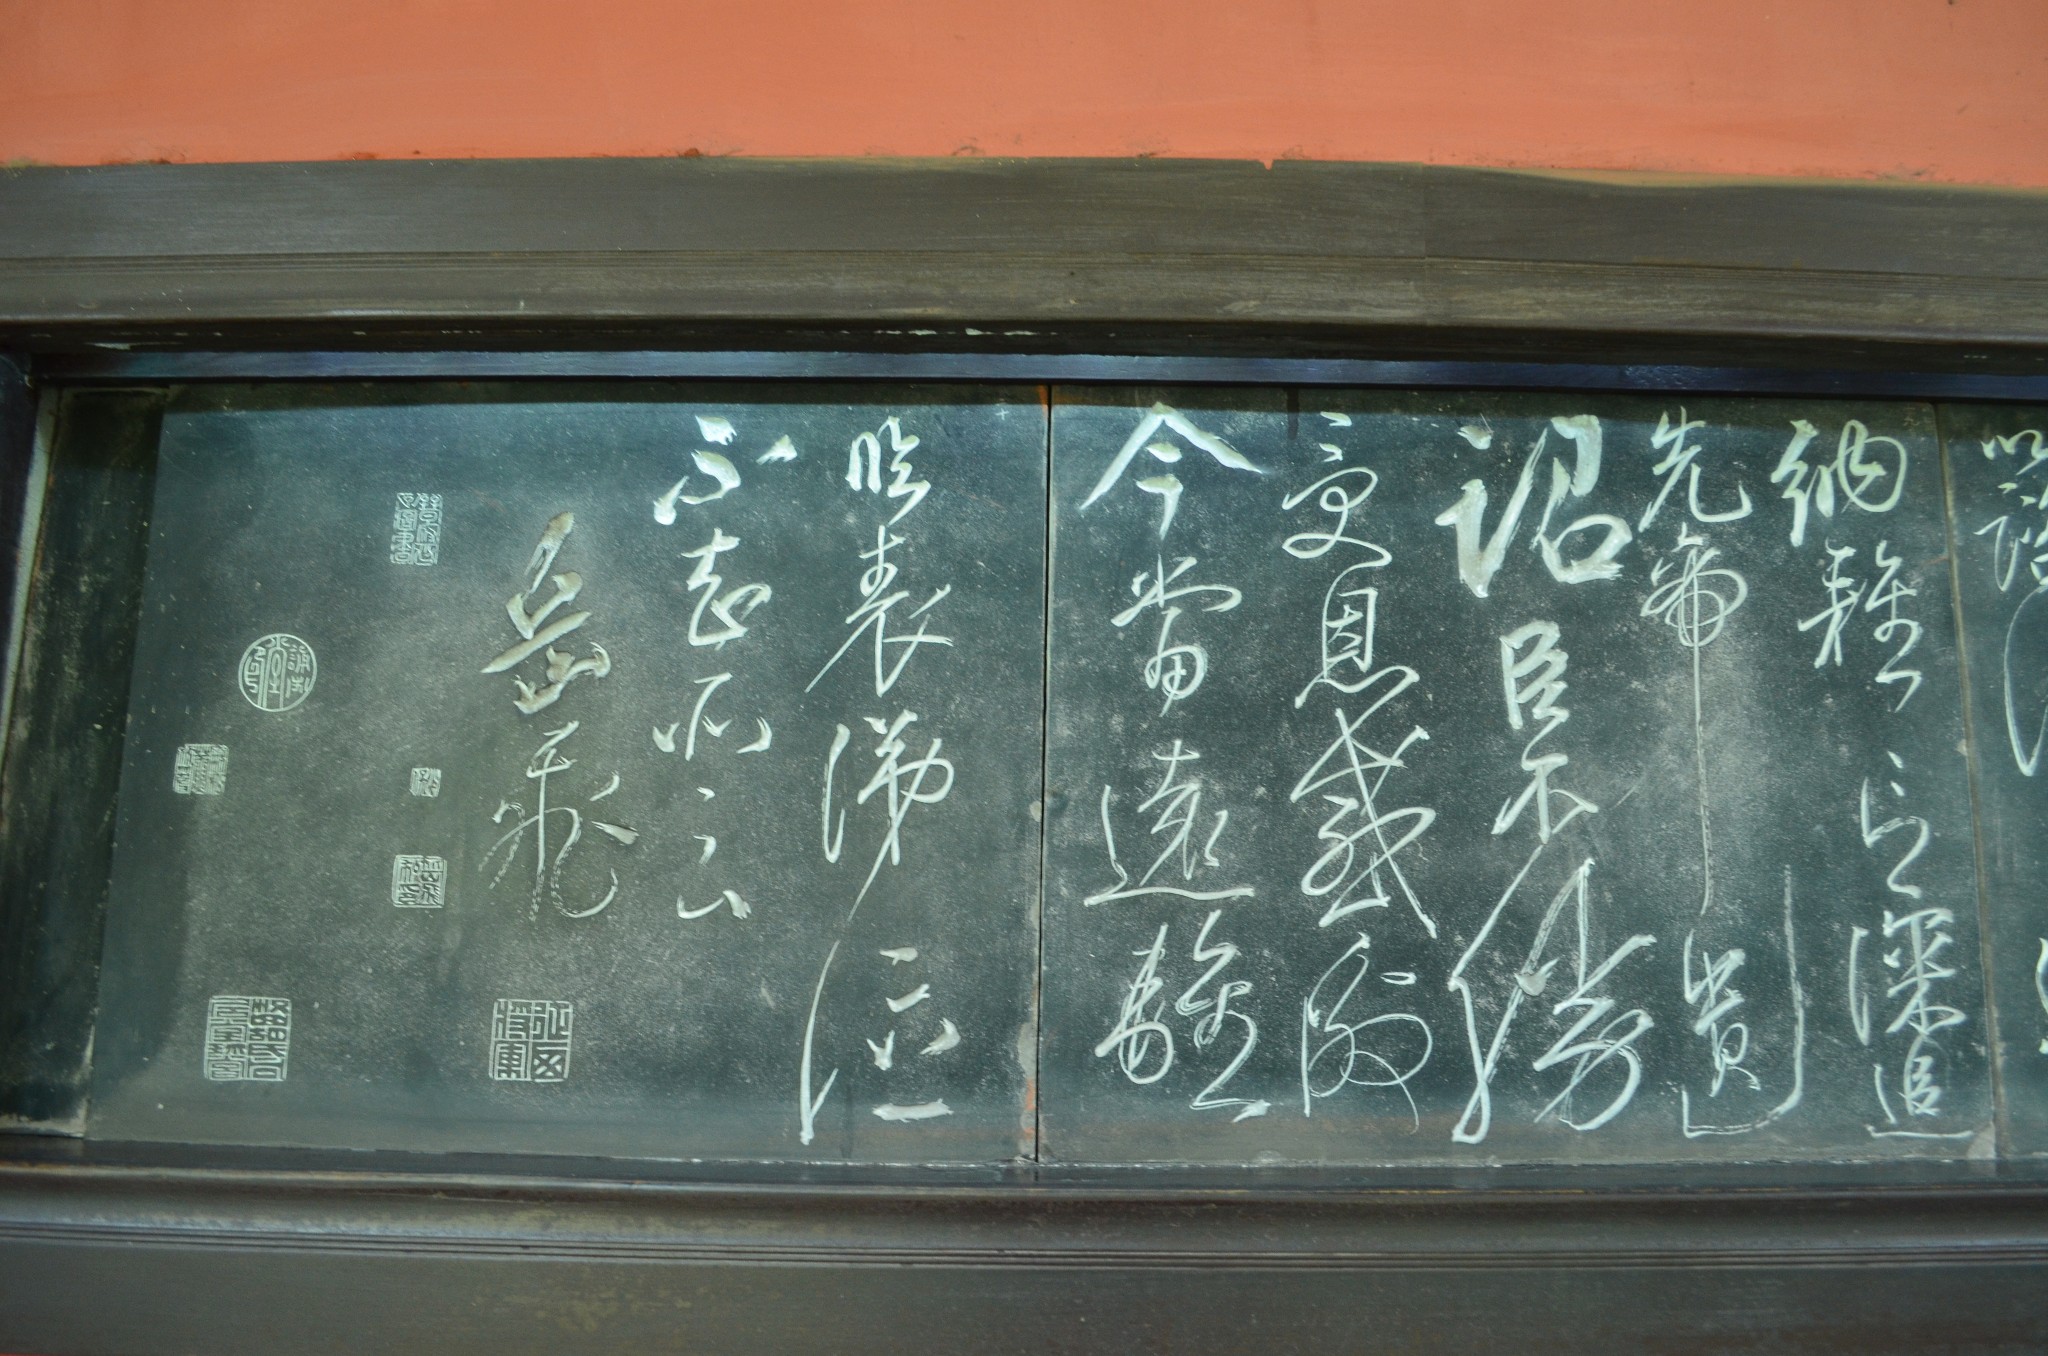 以諮
納雅言深追
先帝遺
詔臣不勝
受恩感激
今當遠離
臨表涕泣
不知所云
岳飛